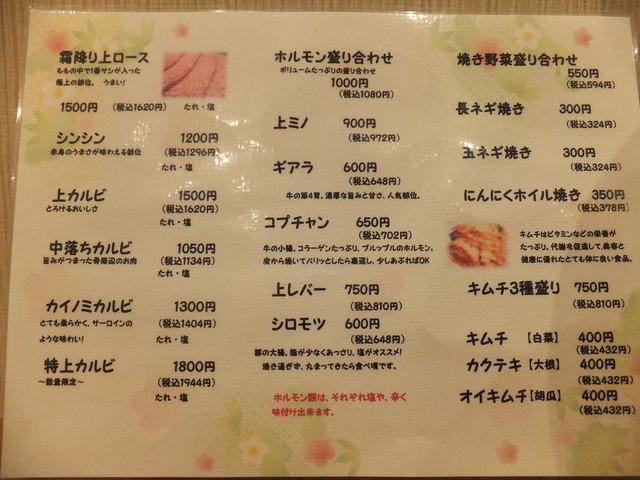 霜降り上ロース
ももの中で1番サシが入った
極上の部位。 うまい!
1500円 (税込1620円) たれ・塩
シンシン 1200円
赤身のうまさが味わえる部位 (税込1296円)
たれ・塩
上カルビ 1500円
とろけるおいしさ (税込1620円)
たれ・塩
中落ちカルビ 1050円
旨みがつまった骨周辺のお肉 (税込1134円)
たれ・塩
カイノミカルビ 1300円
とても柔らかく、サーロインの (税込1404円)
ような味わい! たれ・塩
特上カルビ 1800円
~数量限定~ (税込1944円)
たれ・塩
ホルモン盛り合わせ
ボリュームたっぷりの盛り合わせ
1000円
(税込1080円)
上ミノ 900円
(税込972円)
ギアラ 600円
(税込648円)
牛の第4胃、濃厚な旨みと甘さ、人気部位。
コプチャン 650円
(税込702円)
牛の小腸、コラーゲンたっぷり、プルップルのホルモン。
皮から焼いてパリッとしたら裏返し、少しあぶればOK
上レバー 750円
(税込810円)
シロモツ 600円
(税込648円)
豚の大腸、脂が少なくあっさり、塩がオススメ!
焼き過ぎず、丸まってきたら食べ頃です。
ホルモン類は、それぞれ塩や、辛く
味付け出来ます。
焼き野菜盛り合わせ
550円
(税込594円)
長ネギ焼き 300円
(税込324円)
玉ネギ焼き 300円
(税込324円)
にんにくホイル焼き 350円
(税込378円)
キムチはビタミンなどの栄養が
たっぷり、代謝を促進して、美容と
健康に優れたとても体に良い食品。
キムチ3種盛り 750円
(税込810円)
キムチ 【白菜】 400円
(税込432円)
カクテキ 【大根】 400円
(税込432円)
オイキムチ【胡瓜】 400円
(税込432円)